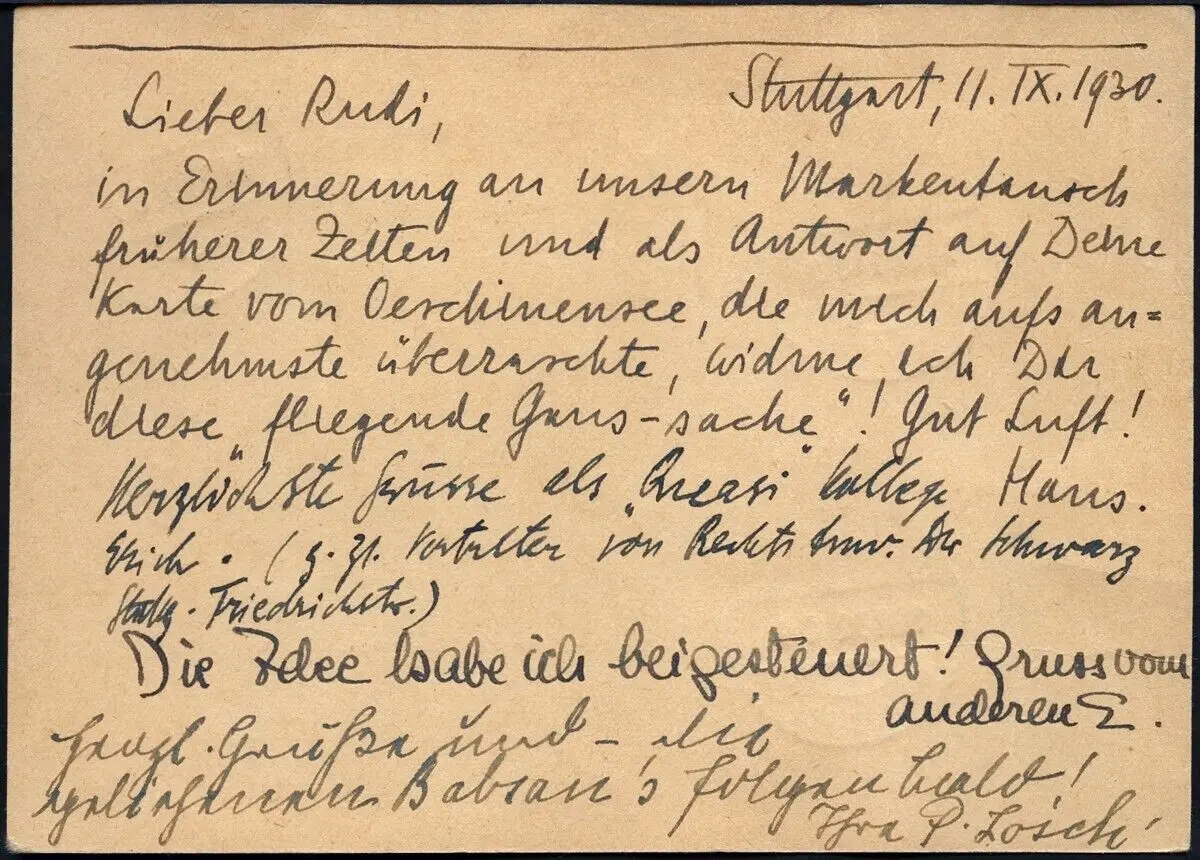 Stuttgart, 11. IX. 1930.
Lieber Rudi,
in Erinnerung an unsern Markentausch
früherer Zeiten und als Antwort auf Deine
Karte vom Oeschinensee, die mich aufs an=
genehmste überraschte, widme ich Dir
diese „fliegende Gans-sache“! Gut Luft!
Herzlichste Grüsse als „Quasi“ Kollege Hans.
Erich. (z. Zt. Vertreter von Rechtsanw. Dr Schwarz
Stuttg. Friedrichstr.)
Die Idee habe ich beigesteuert! Gruss vom
anderen E.
Herzl. Grüße und – die
geliehenen folgen bald!
Ihre P. Lösch